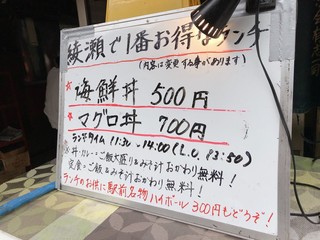 綾瀬で1番お得なランチ
(内容は変更する事があります)
☆海鮮丼 500円
☆マグロ丼 700円
ランチタイム 11:30~14:00(L.O. 13:50)
※丼・カレー・ご飯大盛り&みそ汁おかわり無料!
定食・ご飯&みそ汁おかわり無料!
ランチのお供に駅前名物ハイボール300円もどうぞ!